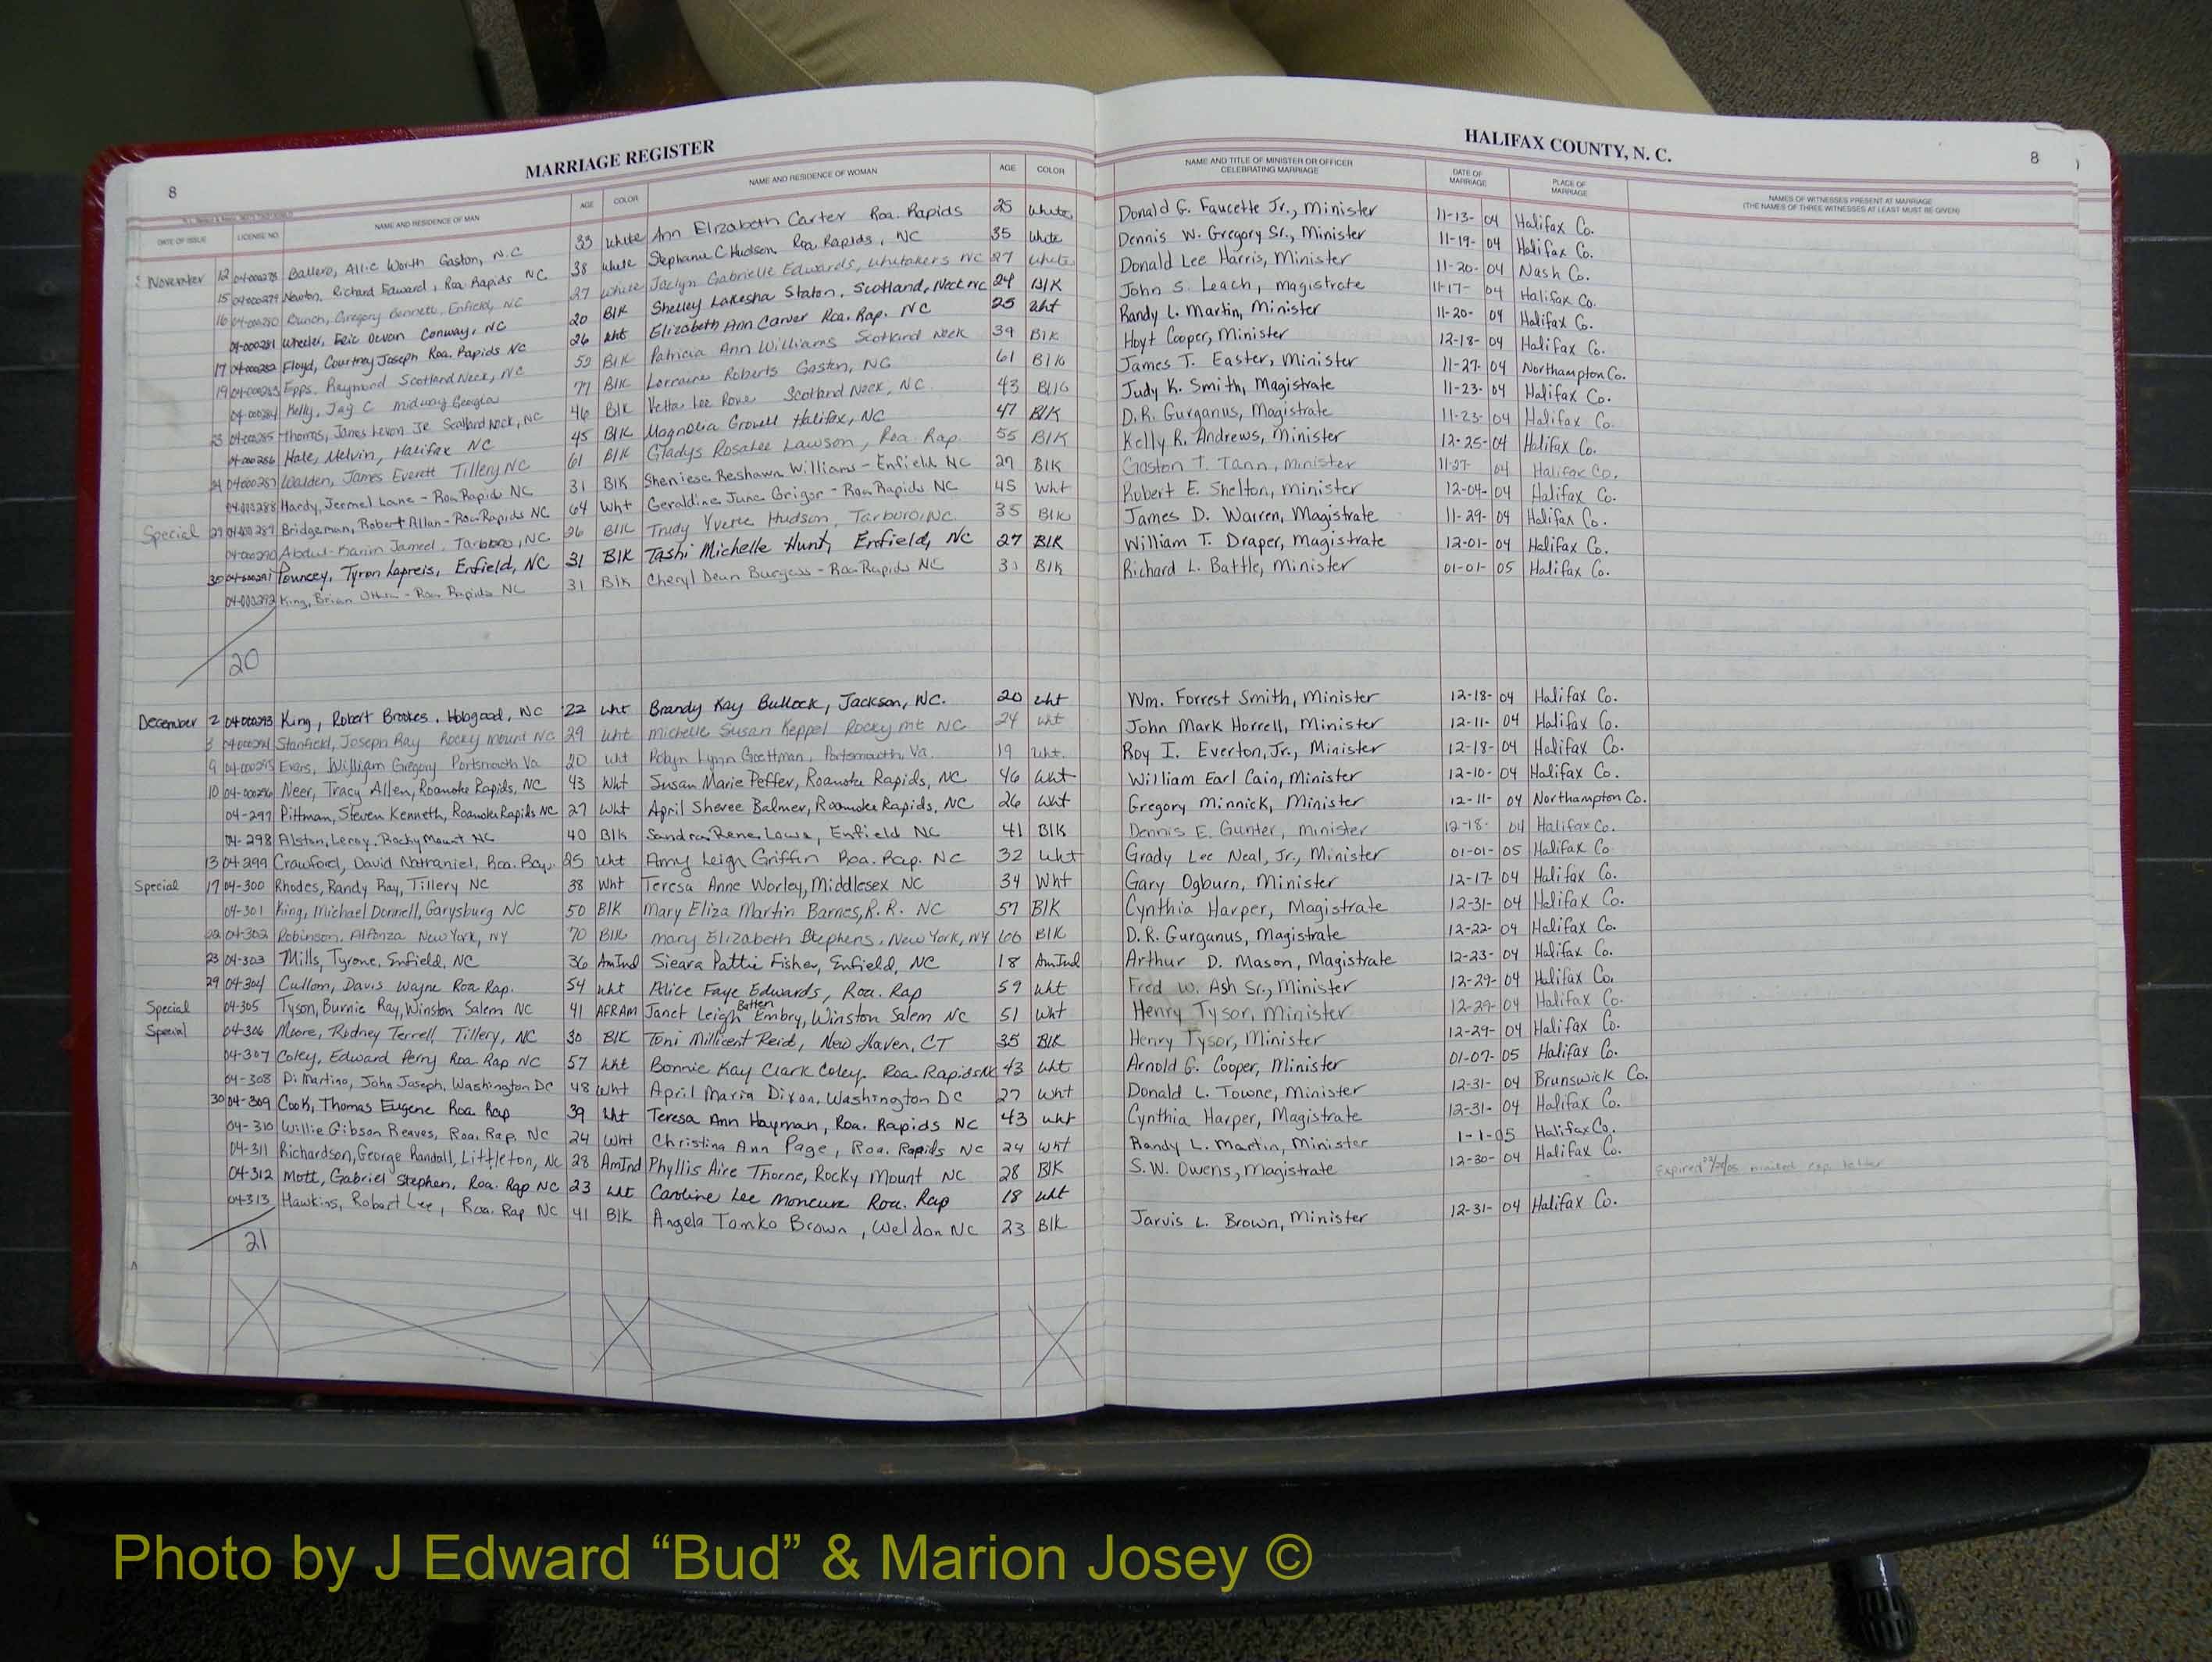 MARRIAGE REGISTER
HALIFAX COUNTY, N. C.
8
8
DATE OF ISSUE LICENSE NO. NAME AND RESIDENCE OF MAN AGE COLOR NAME AND RESIDENCE OF WOMAN AGE COLOR NAME AND TITLE OF MINISTER OR OFFICER CELEBRATING MARRIAGE DATE OF MARRIAGE PLACE OF MARRIAGE NAMES OF WITNESSES PRESENT AT MARRIAGE
(THE NAMES OF THREE WITNESSES AT LEAST MUST BE GIVEN)
November 12 04-000278 Ballero, Allie Worth Gaston, N.C 33 White Ann Elizabeth Carter Roa. Rapids 25 White Donald G. Faucette Jr., Minister 11-13-04 Halifax Co.
15 04-000279 Newton, Richard Edward, Roa Rapids NC 38 White Stephanie C Hudson, Roa Rapids, NC 35 White Dennis W. Gregory Sr., Minister 11-19-04 Halifax Co.
16 04-000280 Bunch, Gregory Bennett, Enfield, NC 27 White Jaclyn Gabrielle Edwards, Whitakers NC 27 White Donald Lee Harris, Minister 11-20-04 Nash Co.
04-000281 Wheeler, Eric Devan Conway, NC 20 Blk Shelley Lakesha Staton, Scotland, Neck NC 24 Blk John S. Leach, Magistrate 11-17-04 Halifax Co.
17 04-000282 Floyd, Courtney Joseph Roa. Rapids NC 26 Wht Elizabeth Ann Carver Roa. Rap. NC 25 Wht Randy L. Martin, Minister 11-20-04 Halifax Co.
19 04-000283 Epps, Raymond Scotland Neck, NC Blk Patricia Ann Williams Scotland Neck 39 Blk Hoyt Cooper, Minister 12-18-04 Halifax Co.
04-000284 Kelly, Jay C Midway Georgia 77 Blk Lorraine Roberts Gaston, NC 61 Blk James T. Easter, Minister 11-27-04 Northampton Co.
23 04-000285 Thomas, James Levon Jr Scotland Neck, NC 46 Blk Vetta Lee Scotland Neck, NC 43 Blk Judy K. Smith, Magistrate 11-23-04 Halifax Co.
04-000286 Hale, Melvin, Halifax NC 45 Blk Magnolia Crowell Halifax, NC 47 Blk D.R. Gurganus, Magistrate 11-23-04 Halifax Co.
24 04-000287 Walden, James Everett Tillery NC 61 Blk Gladys Rosalee Lawson, Roa. Rap. 55 Blk Kelly R. Andrews, Minister 12-25-04 Halifax Co.
04-000288 Hardy, Jermel Lane - Roa Rapids NC 31 Blk Sheniese Reshawn Williams - Enfield NC 27 Blk Gaston T. Tann, Minister 11-27-04 Halifax Co.
Special 29 04-000289 Bridgeman, Robert Allan - Roa Rapids NC 64 Wht Geraldine June Grigor - Roa Rapids NC 45 Wht Robert E. Shelton, Minister 12-04-04 Halifax Co.
04-000290 Abdul-Karim Jameel, Tarboro, NC 26 Blk Trudy Yvette Hudson, Tarboro, NC 35 Blk James D. Warren, Magistrate 11-29-04 Halifax Co.
30 04-000291 Pouncey, Tyron Lapreis, Enfield, NC 31 Blk Tashi Michelle Hunt, Enfield, NC 27 Blk William T. Draper, Magistrate 12-01-04 Halifax Co.
04-000292 King, Brian - Roa Rapids NC 31 Blk Cheryl Dean Burgess - Roa Rapids NC Blk Richard L. Battle, Minister 01-01-05 Halifax Co.
20
December 2 04-000293 King, Robert Brookes, Hobgood, NC 22 Wht Brandy Kay Bullock, Jackson, NC. 20 Wht Wm. Forrest Smith, Minister 12-18-04 Halifax Co.
3 04-000294 Stanfield, Joseph Ray Rocky Mount NC 29 Wht Michelle Susan Keppel Rocky Mt NC 24 Wht John Mark Horrell, Minister 12-11-04 Halifax Co.
9 04-000295 Evans, William Gregory Portsmouth Va 20 Wht Robyn Lynn Goettman, Portsmouth, Va. 19 Wht. Roy I. Everton, Jr., Minister 12-18-04 Halifax Co.
10 04-000296 Neer, Tracy Allen, Roanoke Rapids, NC 43 Wht Susan Marie Peffer, Roanoke Rapids, NC 46 Wht William Earl Cain, Minister 12-10-04 Halifax Co.
04-297 Pittman, Steven Kenneth, Roanoke Rapids NC 27 Wht April Sheree Balmer, Roanoke Rapids, NC 26 Wht Gregory Minnick, Minister 12-11-04 Northampton Co.
04-298 Alston, Leroy, Rocky Mount NC 40 Blk Sandra Rene Lowe, Enfield NC 41 Blk Dennis E. Gunter, Minister 12-18-04 Halifax Co.
13 04-299 Crawford, David Nathaniel, Roa. Rap. 25 Wht Amy Leigh Griffin Roa. Rap. NC 32 Wht Grady Lee Neal, Jr., Minister 01-01-05 Halifax Co
Special 17 04-300 Rhodes, Randy Ray, Tillery NC 38 Wht Teresa Anne Worley, Middlesex NC 34 Wht Gary Ogburn, Minister 12-17-04 Halifax Co.
04-301 King, Michael Donnell, Garysburg NC 50 Blk Mary Eliza Martin Barnes, R.R. NC 57 Blk Cynthia Harper, Magistrate 12-31-04 Halifax Co.
22 04-302 Robinson, Alfonza New York, NY 70 Blk Mary Elizabeth Stephens, New York, NY 66 Blk D.R. Gurganus, Magistrate 12-22-04 Halifax Co.
23 04-303 Mills, Tyrone, Enfield, NC 36 AmInd Sieara Pattie Fisher, Enfield, NC 18 AmInd Arthur D. Mason, Magistrate 12-23-04 Halifax Co.
29 04-304 Cullom, Davis Wayne Roa Rap. 54 Wht Alice Faye Edwards, Roa. Rap 59 Wht Fred W. Ash Sr., Minister 12-29-04 Halifax Co.
Special 04-305 Tyson, Burnie Ray, Winston Salem NC 41 AFRAM Janet Leigh Batten Embry, Winston Salem NC 51 Wht Henry Tysor, Minister 12-29-04 Halifax Co.
Special 04-306 Moore, Rodney Terrell, Tillery, NC 30 Blk Toni Millicent Reid, New Haven, CT 35 Blk Henry Tysor, Minister 12-29-04 Halifax Co.
04-307 Coley, Edward Perry Roa Rap NC 57 Wht Bonnie Kay Clark Coley, Roa. Rapids NC 43 Wht Arnold G. Cooper, Minister 01-07-05 Halifax Co.
04-308 Di Martino, John Joseph, Washington DC 48 Wht April Maria Dixon, Washington DC 27 Wht Donald L. Towne, Minister 12-31-04 Brunswick Co.
30 04-309 Cook, Thomas Eugene Roa Rap 39 Wht Teresa Ann Hayman, Roa. Rapids NC 43 Wht Cynthia Harper, Magistrate 12-31-04 Halifax Co.
04-310 Willie Gibson Reaves, Roa. Rap. NC 24 Wht Christina Ann Page, Roa. Rapids NC 24 Wht Randy L. Martin, Minister 1-1-05 Halifax Co.
04-311 Richardson, George Randall, Littleton, NC 28 AmInd Phyllis Aire Thorne, Rocky Mount NC 28 Blk S.W. Owens, Magistrate 12-30-04 Halifax Co.
04-312 Mott, Gabriel Stephen, Roa. Rap NC 23 Wht Caroline Lee Moncure Roa. Rap 18 Wht Expired mailed exp letter
04-313 Hawkins, Robert Lee, Roa. Rap NC 41 Blk Angela Tomko Brown, Weldon NC 23 Blk Jarvis L. Brown, Minister 12-31-04 Halifax Co.
21
Photo by J Edward “Bud” & Marion Josey ©